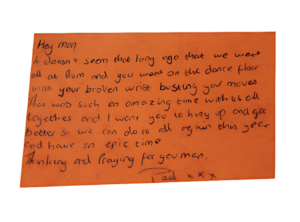 Hey man
It doesn't seem that long ago that we were
all at Plum and you went on the dance floor
with your broken wrist busting you moves
That was such an amazing time with us all
together and I want you to hurry up and get
better so we can do it all again this year
and have an epic time
Thinking and Praying for you man.
Paul x x x